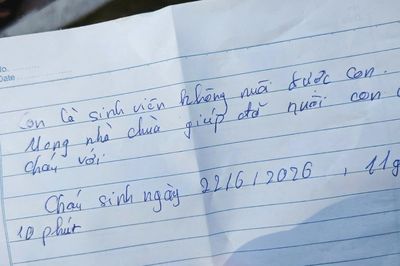 No.
Date
Con là sinh viên không nuôi được con.
Mong nhà chùa giúp đỡ nuôi con
cháu với.
Cháu sinh ngày 22/6/2026, 11g
10 phút